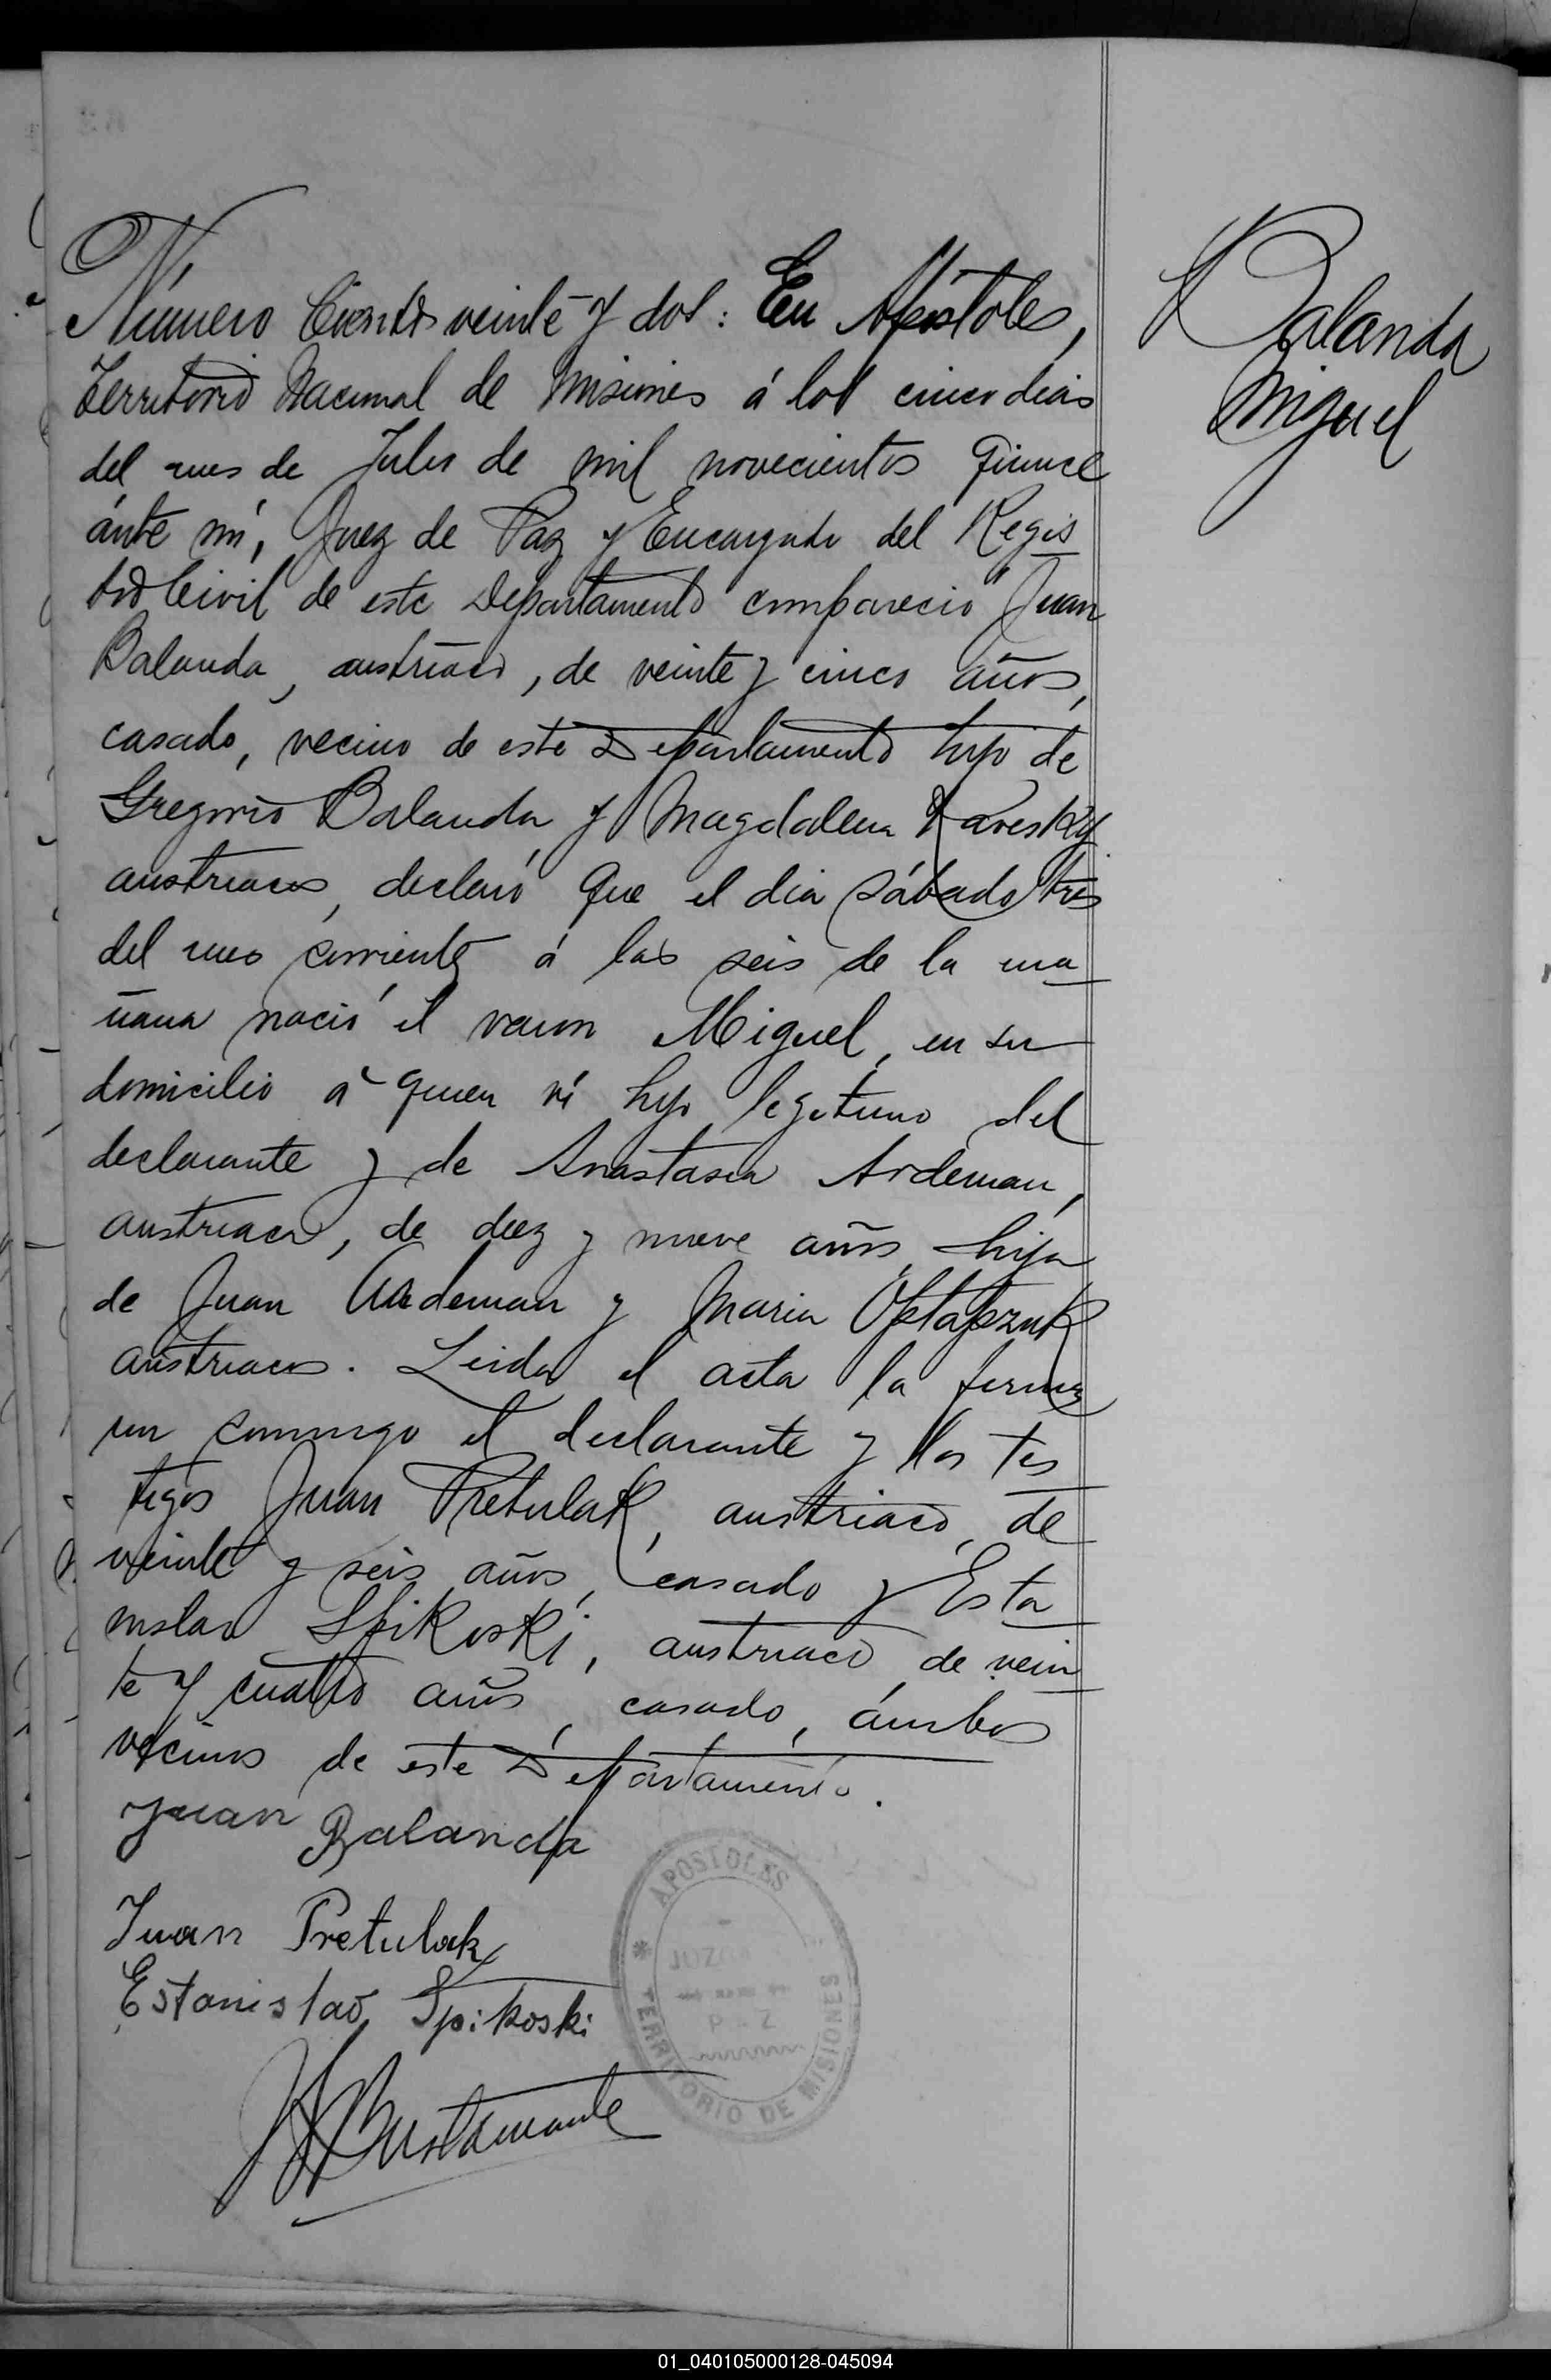 Número Ciento veinte y dos: En Apóstoles,
Territorio Nacional de Misiones á los cinco dias
del mes de Julio de mil novecientos quince
ánte mí, Juez de Paz y Encargado del Regis
tro Civil de este Departamento compareció Juan
Balanda, austriaco, de veinte y cinco años,
casado, vecino de este Departamento hijo de
Gregorio Balanda y Magdalena Karesky
austriacos, declaró que el dia sábado tres
del mes corriente á las seis de la ma
ñana nació el varon Miguel, en su
domicilio á quien ví hijo legitimo del
declarante y de Anastasia Ardeman,
austriaca, de diez y nueve años, hija
de Juan Ardeman y Maria Optapszuk
austriacos. Leida el acta la firma
ron conmigo el declarante y los tes
tigos Juan Pretulak, austriaco, de
veinte y seis años, casado y Esta
nislao Spikoski, austriaco, de vein
te y cuatro años, casado, ámbos
vecinos de este Departamento.
Juan Balanda
Juan Pretulak
Estanislao Spikoski
Bustamante
Balanda
Miguel
APOSTOLES
JUZGADO
PAZ
TERRITORIO DE MISIONES
01_040105000128-045094